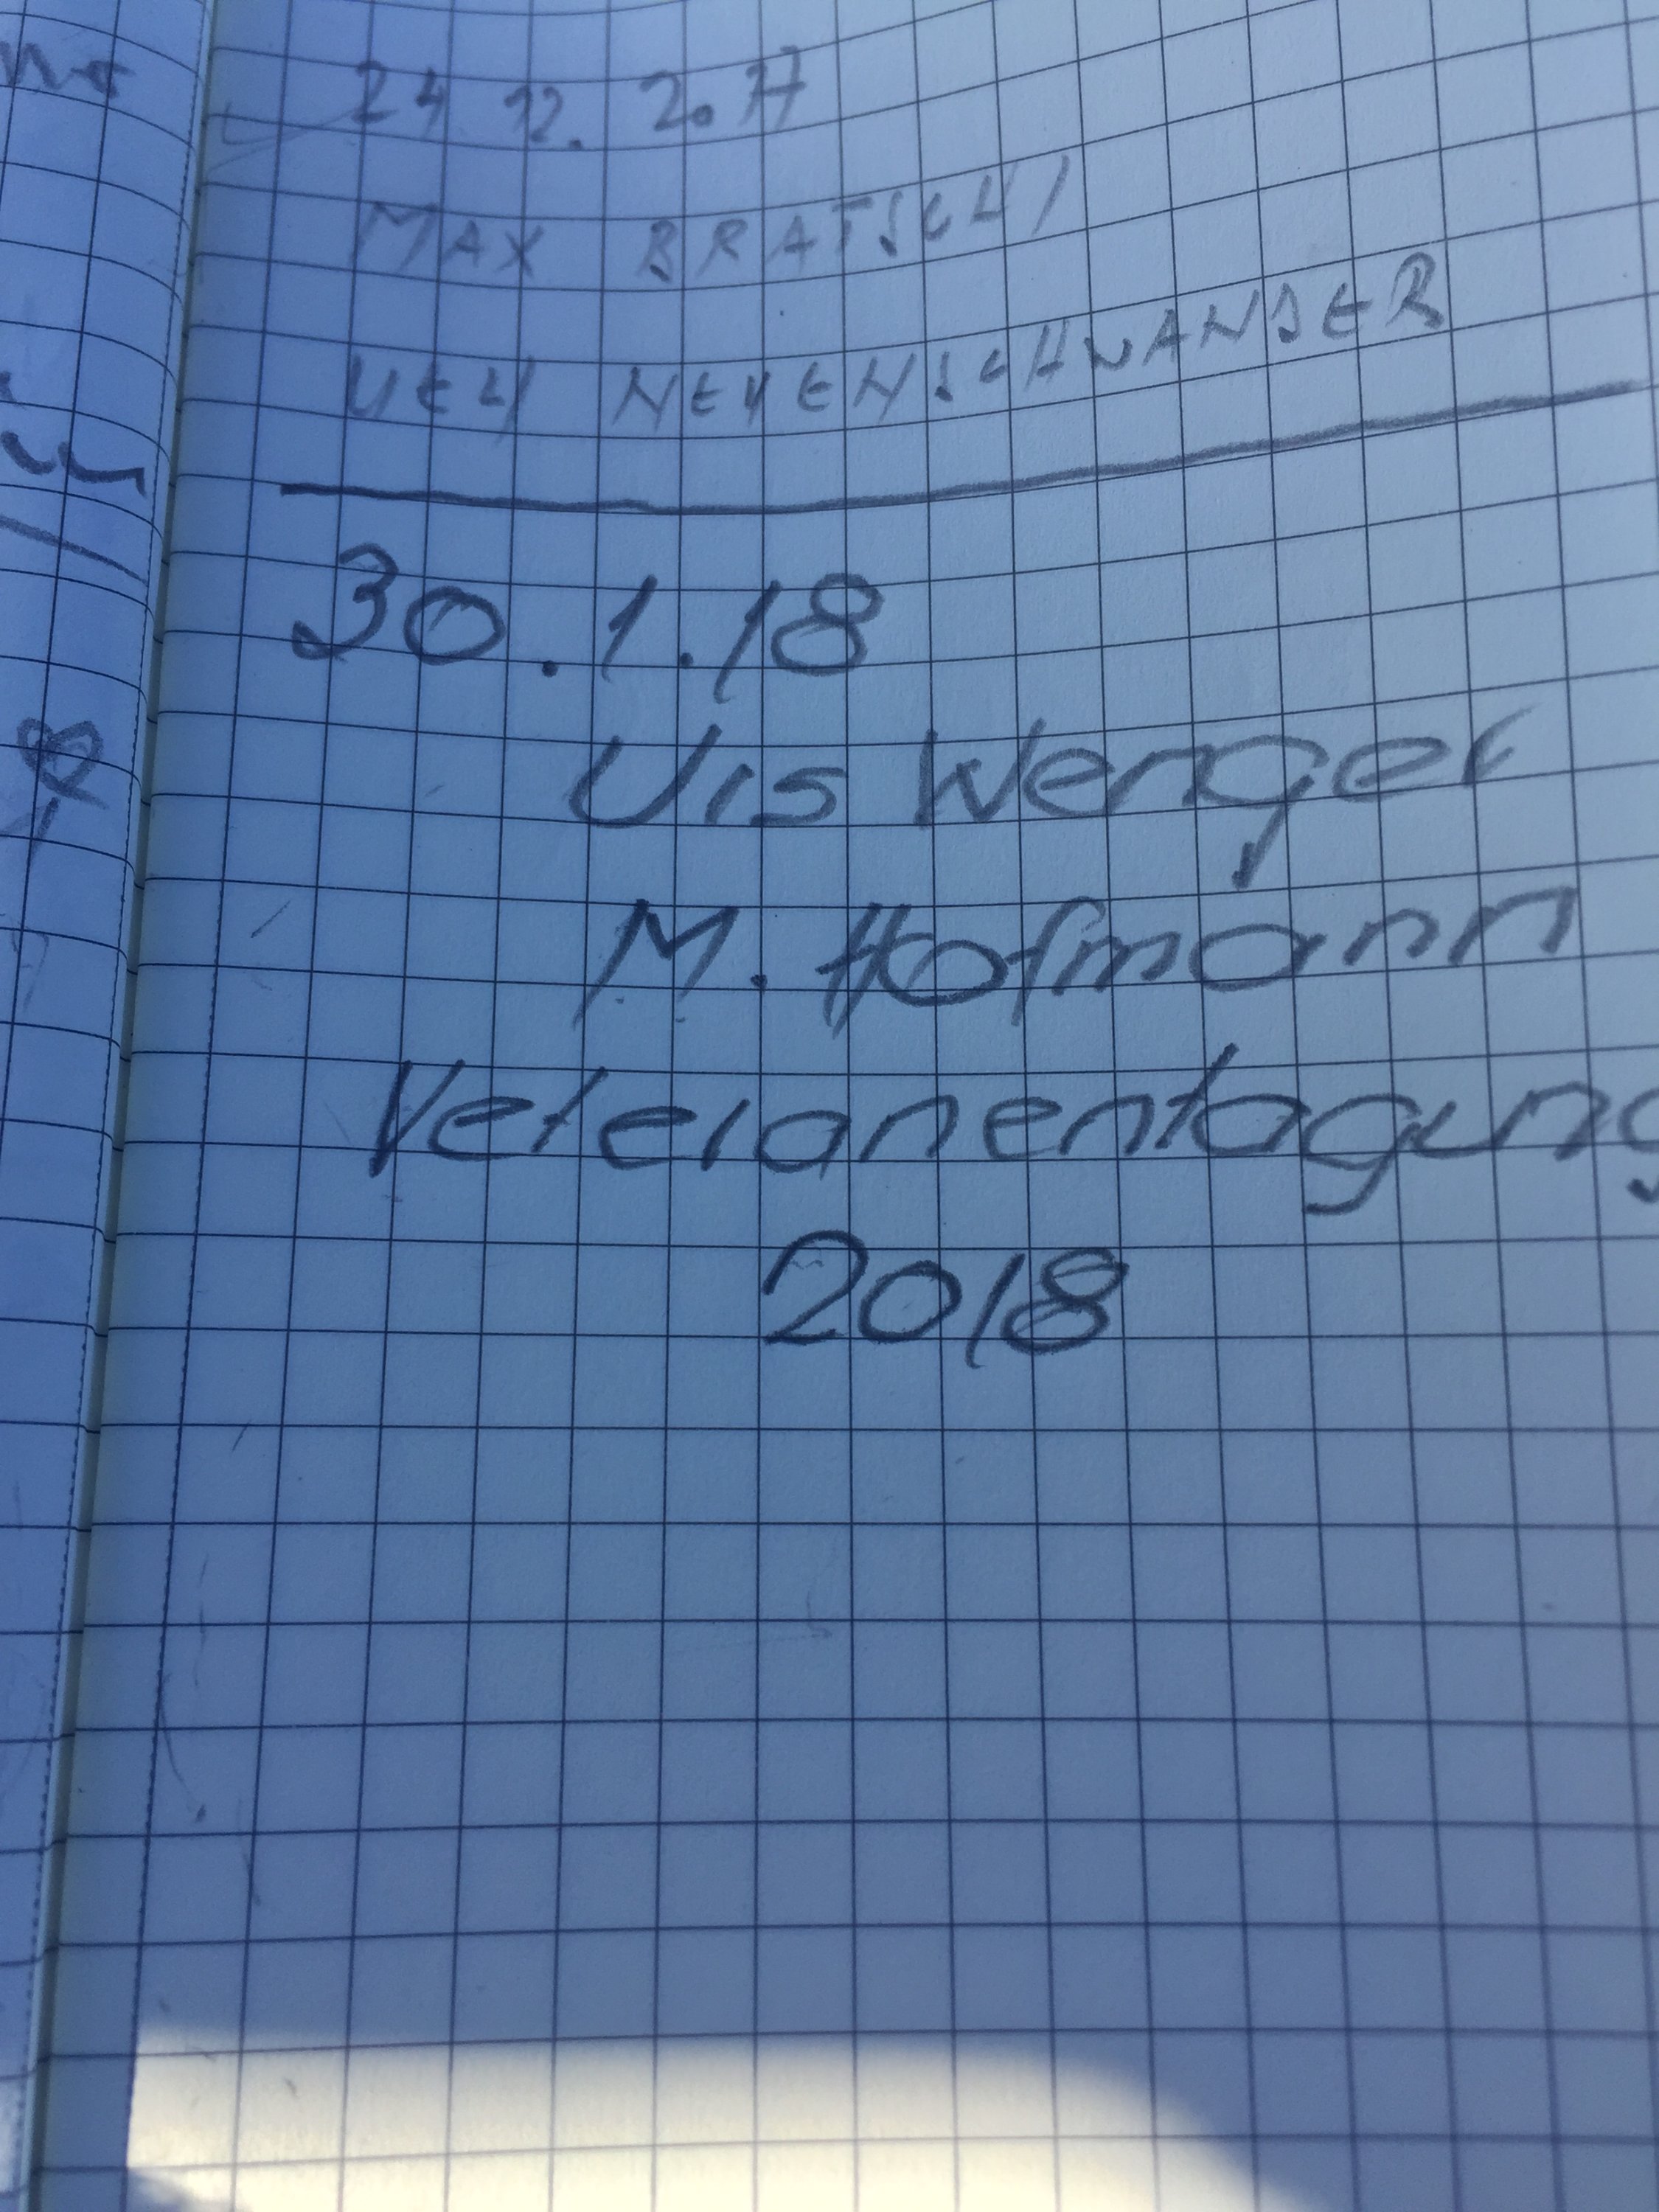 24 12. 2.17
MAX BRATSCHI
UELI NEUENSCHWANDER
30.1.18
Urs Wenger
M. Hofmann
Veteranentagung
2018